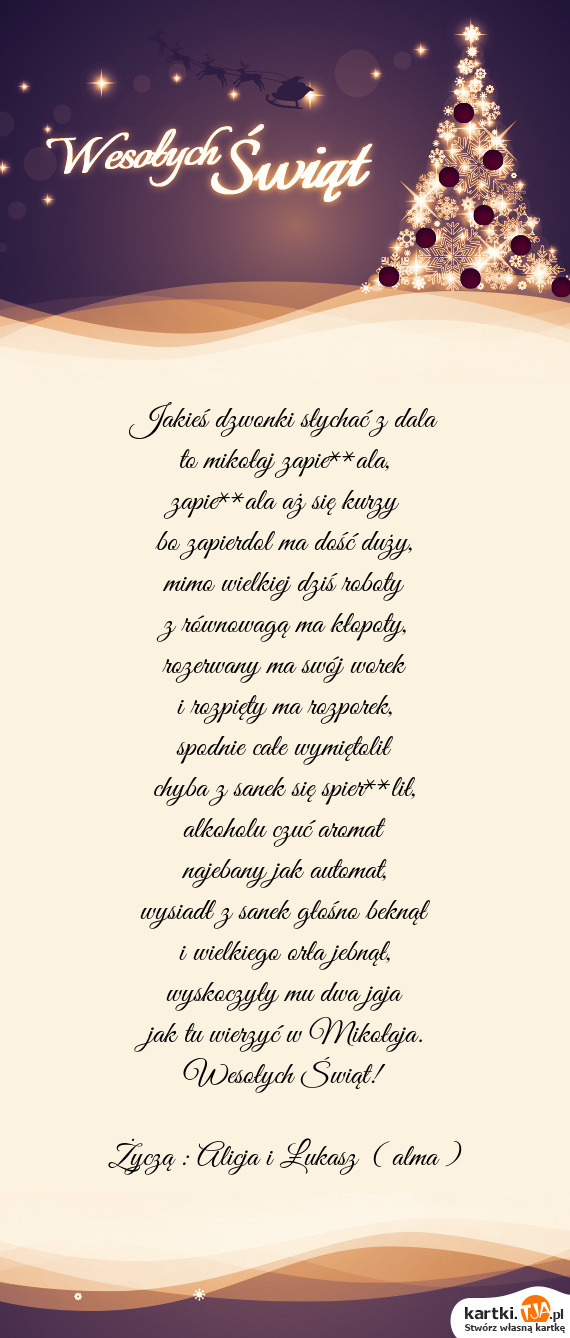 Wesołych Świąt
Jakieś dzwonki słychać z dala
to mikołaj zapie**ala,
zapie**ala aż się kurzy
bo zapierdol ma dość duży,
mimo wielkiej dziś roboty
z równowagą ma kłopoty,
rozerwany ma swój worek
i rozpięty ma rozporek,
spodnie całe wymiętolił
chyba z sanek się spier**lił,
alkoholu czuć aromat
najebany jak automat,
wysiadł z sanek głośno beknął
i wielkiego orła jebnął,
wyskoczyły mu dwa jaja
jak tu wierzyć w Mikołaja.
Wesołych Świąt!
Życzą : Alicja i Łukasz ( alma )
kartki.TJA.pl
Stwórz własną kartkę